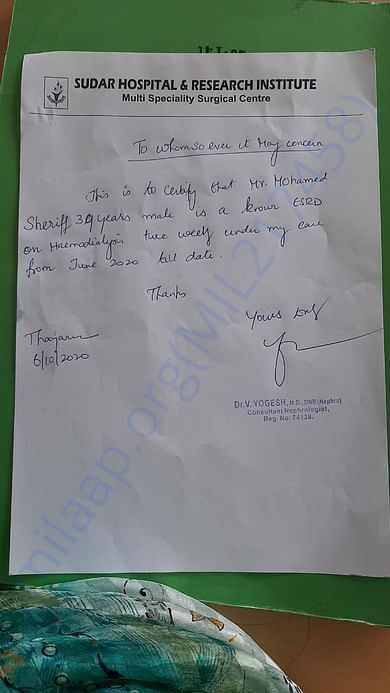 SUDAR HOSPITAL & RESEARCH INSTITUTE
Multi Speciality Surgical Centre
To whomsoever it May concern
This is to certify that Mr. Mohamed
Sheriff 39 years male is a known ESRD
on Haemodialysis twice weekly under my care
from June 2020 till date.
Thanks
Yours
6/10/2020
Dr.V. YOGESH, M.D., DNB (Nephro)
Consultant Nephrologist,
Reg. No: 74138.
milaap.org(MIL2177458)